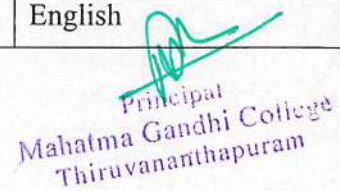 English
Principal
Mahatma Gandhi College
Thiruvananthapuram